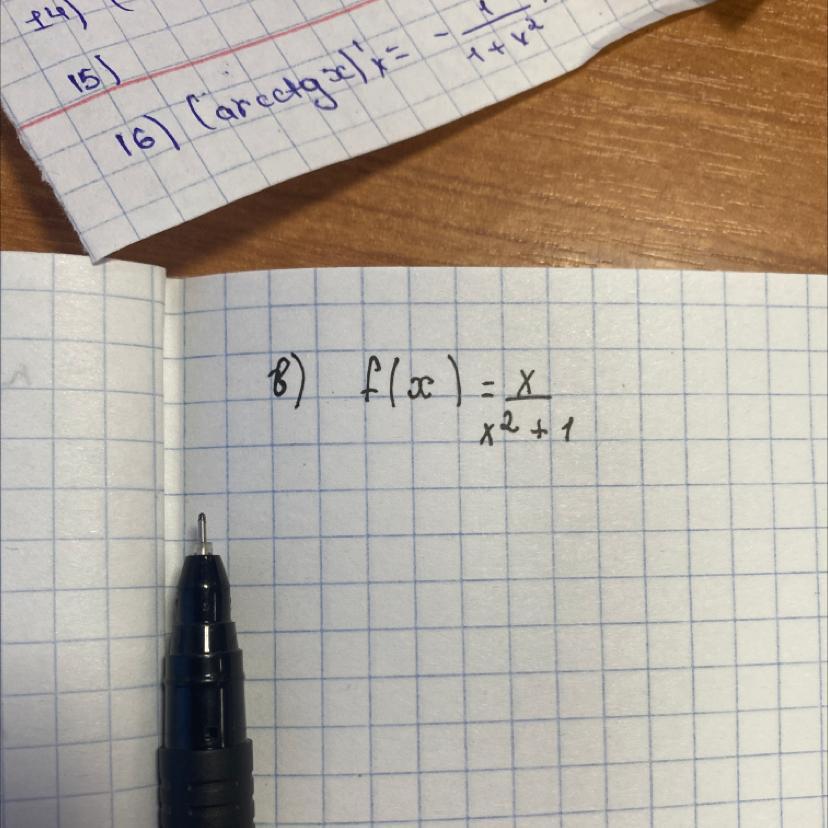 14) (
15)
16) (arcctg x)'x = - 1/(1+x²)
в) f(x) = x/(x² + 1)